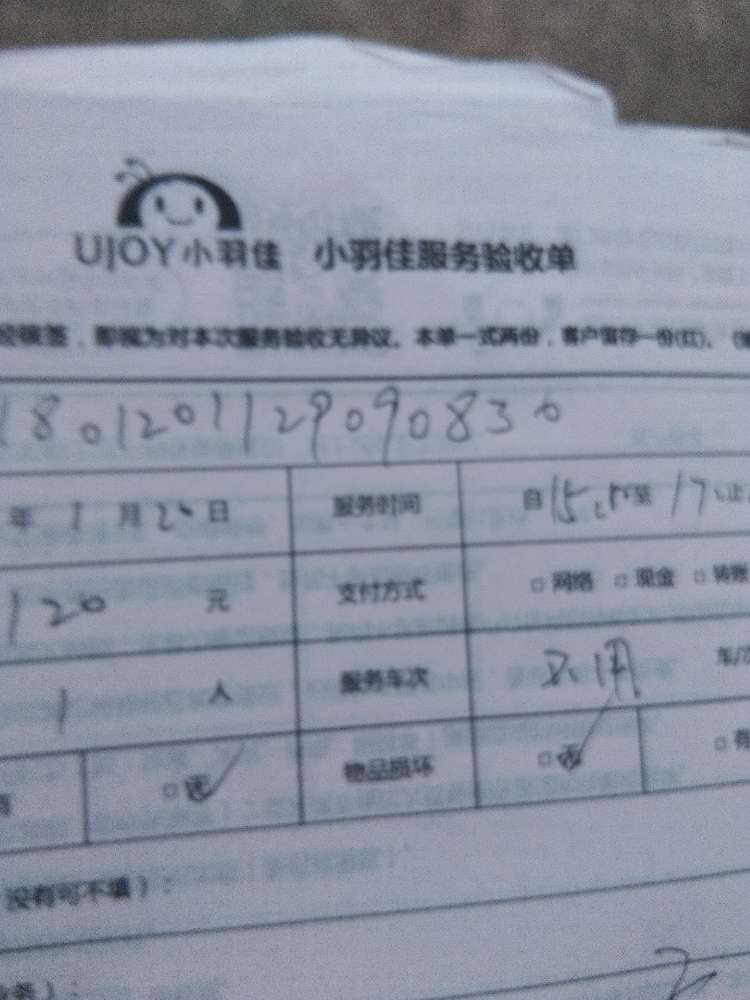 UJOY小羽佳 小羽佳服务验收单
签，即视为对本次服务验收无异议。本单一式两份，客户留存一份(红)。
180120112909083
年 1 月 2 日 服务时间 自 15 至 17 止
120 元 支付方式 □ 网络 □ 现金 □ 转账
1 人 服务车次 车/次
□ 物品损坏 □ □ 有
没有可不填）：